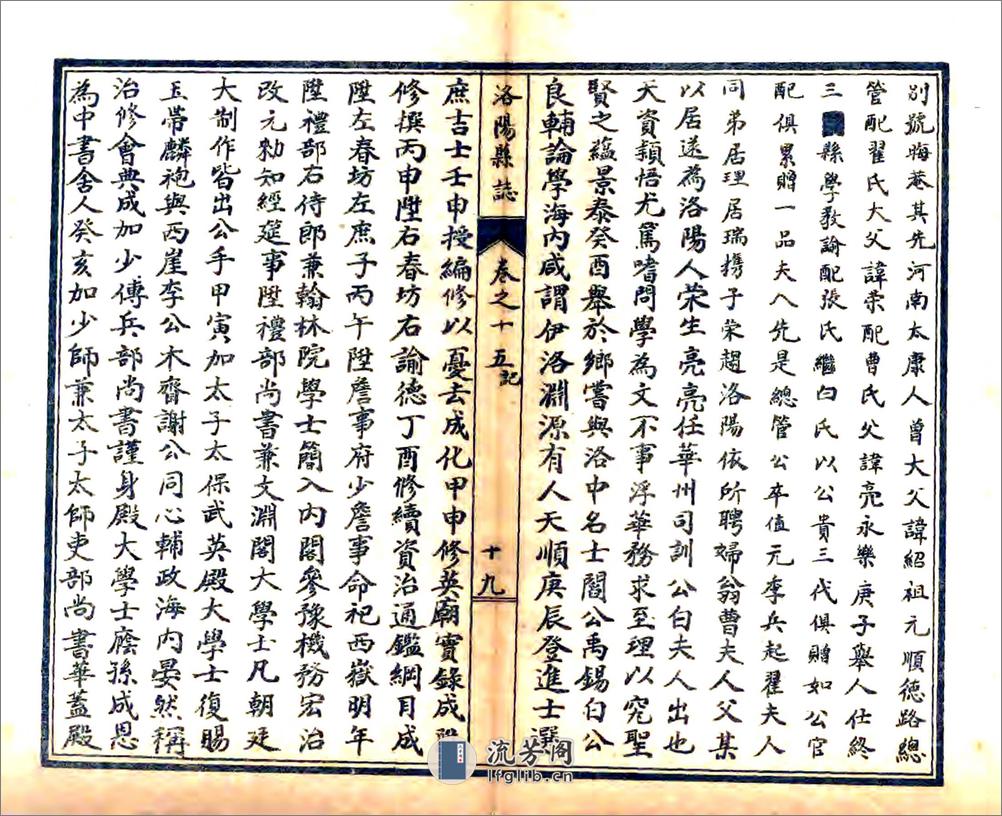 別號晦菴其先河南太康人曾大父諱紹祖元順德路總
管配翟氏大父諱荣配曹氏父諱亮永樂庚子舉人仕終
三縣學教諭配張氏繼白氏以公貴三代俱贈如公官
配俱累贈一品夫人先是總管公卒值元季兵起翟夫人
同弟居理居瑞携子荣趨洛陽依所聘婦翁曹夫人父某
以居遂為洛陽人荣生亮亮任華州司訓公白夫人出也
天資頴悟尤篤嗜問學為文不事浮華務求至理以究聖
賢之蘊景泰癸酉舉於鄉嘗與洛中名士閻公禹錫白公
良輔論學海内咸謂伊洛淵源有人天順庚辰登進士選
洛陽縣誌
卷之十五記
十九
庶吉士壬申授編修以憂去成化甲申修英廟實錄成陞
修撰丙申陞右春坊右諭德丁酉修續資治通鑑綱目成
陞左春坊左庶子丙午陞詹事府少詹事命祀西嶽明年
陞禮部右侍郎兼翰林院學士簡入内閣參豫機務宏治
改元勑知經筵事陞禮部尚書兼文淵閣大學士凡朝廷
大制作皆出公手甲寅加太子太保武英殿大學士復賜
玉帶麟袍與西崖李公木齋謝公同心輔政海内晏然稱
治修會典成加少傅兵部尚書謹身殿大學士廕孫成恩
為中書舍人癸亥加少師兼太子太師吏部尚書華蓋殿
流芳阁
lfglib.cn